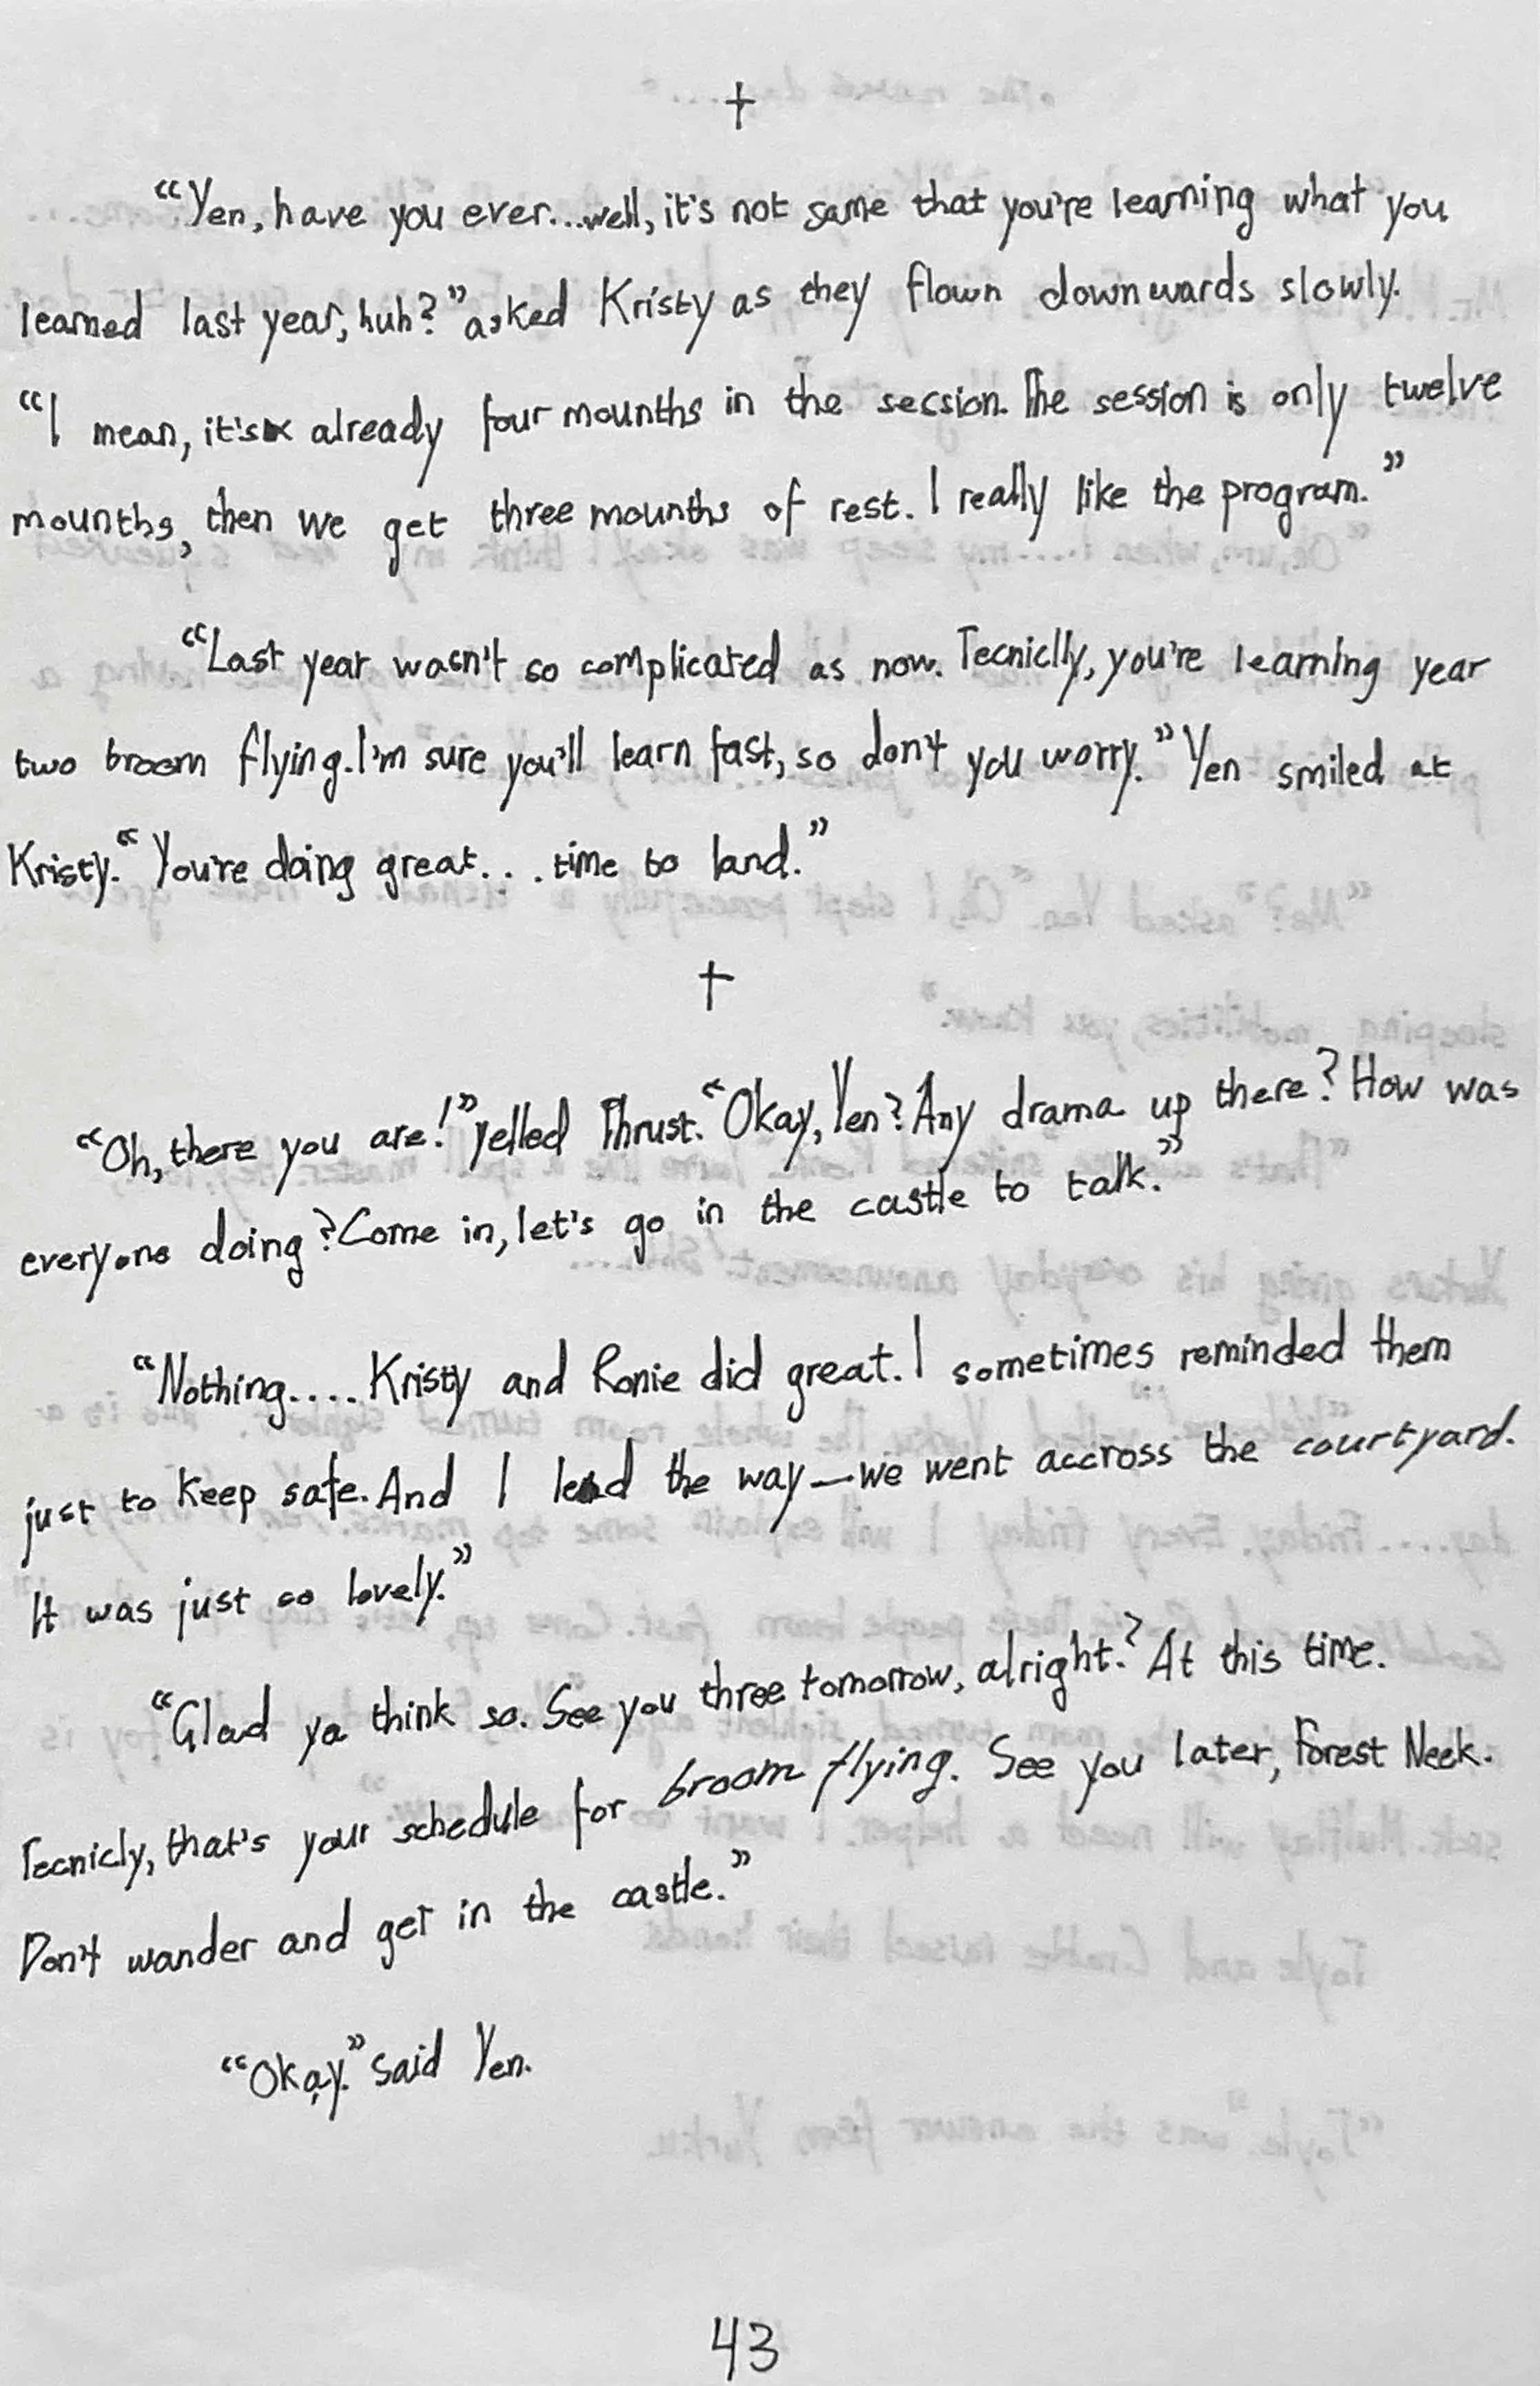 †
“Yen, have you ever...well, it's not same that you're learning what you
learned last year, huh?” asked Kristy as they flown downwards slowly.
“I mean, it's already four mounths in the secsion. The session is only twelve
mounths, then we get three mounths of rest. I really like the program.”
“Last year wasn't so complicated as now. Tecniclly, you're learning year
two broom flying. I'm sure you'll learn fast, so don't you worry.” Yen smiled at
Kristy. “You're doing great... time to land.”
†
“Oh, there you are!” yelled Thrust. “Okay, Yen? Any drama up there? How was
everyone doing? Come in, let's go in the castle to talk.”
“Nothing.... Kristy and Ronie did great. I sometimes reminded them
just to keep safe. And I lead the way—we went accross the courtyard.
It was just so lovely.”
“Glad ya think so. See you three tomorrow, alright? At this time.
Tecnicly, that's your schedule for broom flying. See you later, Forest Neek.
Don't wander and get in the castle.”
“Okay.” said Yen.
43